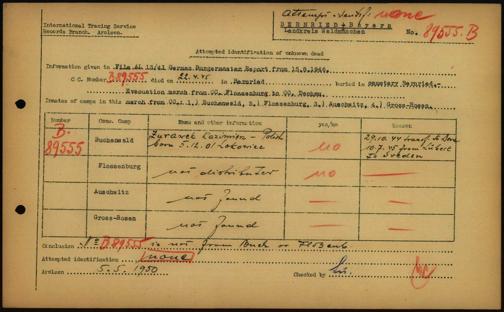 Attempt. identif: none
International Tracing Service
Records Branch. Arolsen.
BERNRIED + Bayern
Landkreis Waldmünchen
No. 89555.B
Attempted identification of unknown dead
Information given in File AL 13/41 German Burgermaster Report from 15.8.1946.
C.C. Number B.89555 died on 22.4.45 in Bernried buried in cemetery Bernried.
Evacuation march from CC. Flossenburg to CC. Dachau.
Inmates of camps in this march from CC.: 1.) Buchenwald, 2.) Flossenburg, 3.) Auschwitz, 4.) Gross-Rosen.
Number Conc. Camp Name and other information yes/no Reason
B. 89555
Buchenwald Zurawek Kazimierz - Polish born 5.12.01 no 29.10.44 transf. to 10.7.45 from Lübeck to Sweden
Flossenburg not distributed no —
Auschwitz not found — —
Gross-Rosen not found — —
Conclusion B.89555 is not from Buch or Flossenb
Attempted identification none
Arolsen 5.5.1950 Checked by